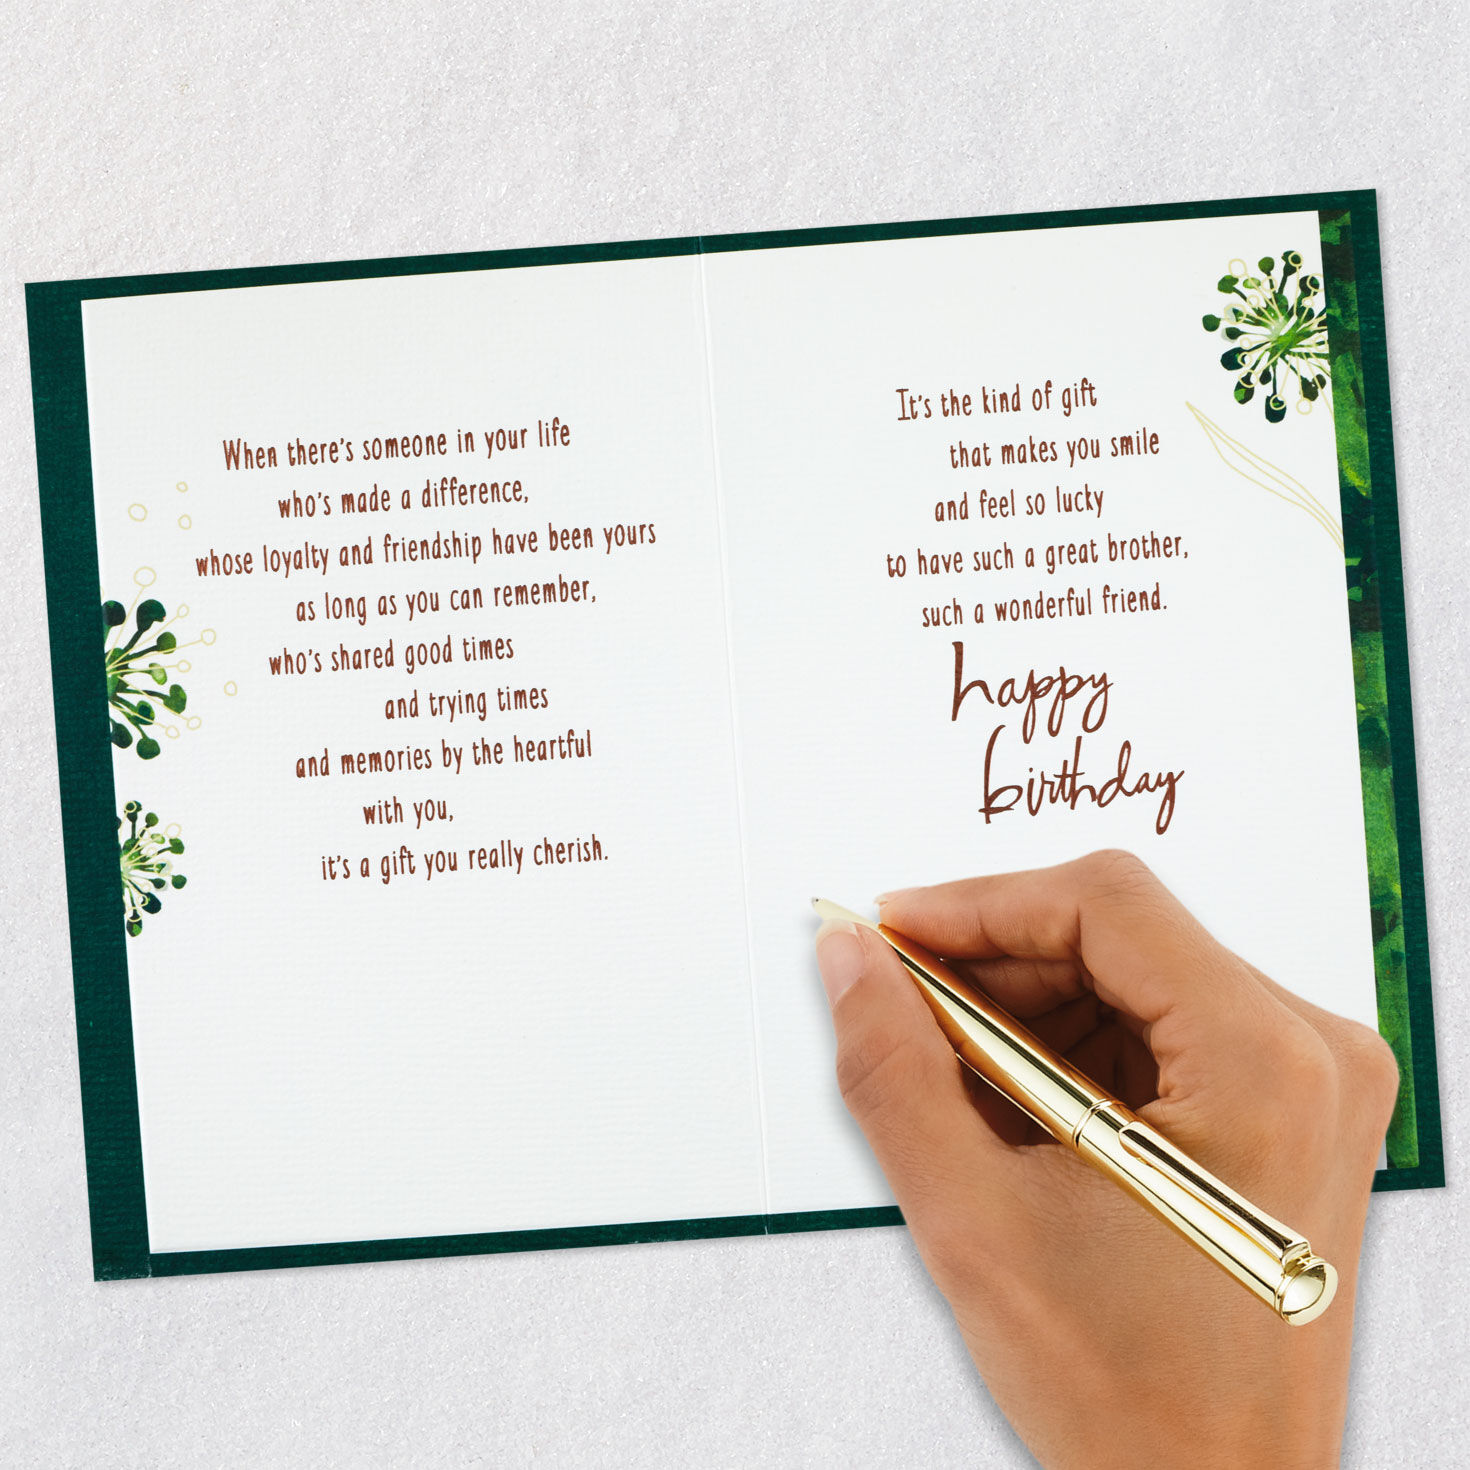 When there's someone in your life
who's made a difference,
whose loyalty and friendship have been yours
as long as you can remember,
who's shared good times
and trying times
and memories by the heartful
with you,
it's a gift you really cherish.
It's the kind of gift
that makes you smile
and feel so lucky
to have such a great brother,
such a wonderful friend.
happy
birthday